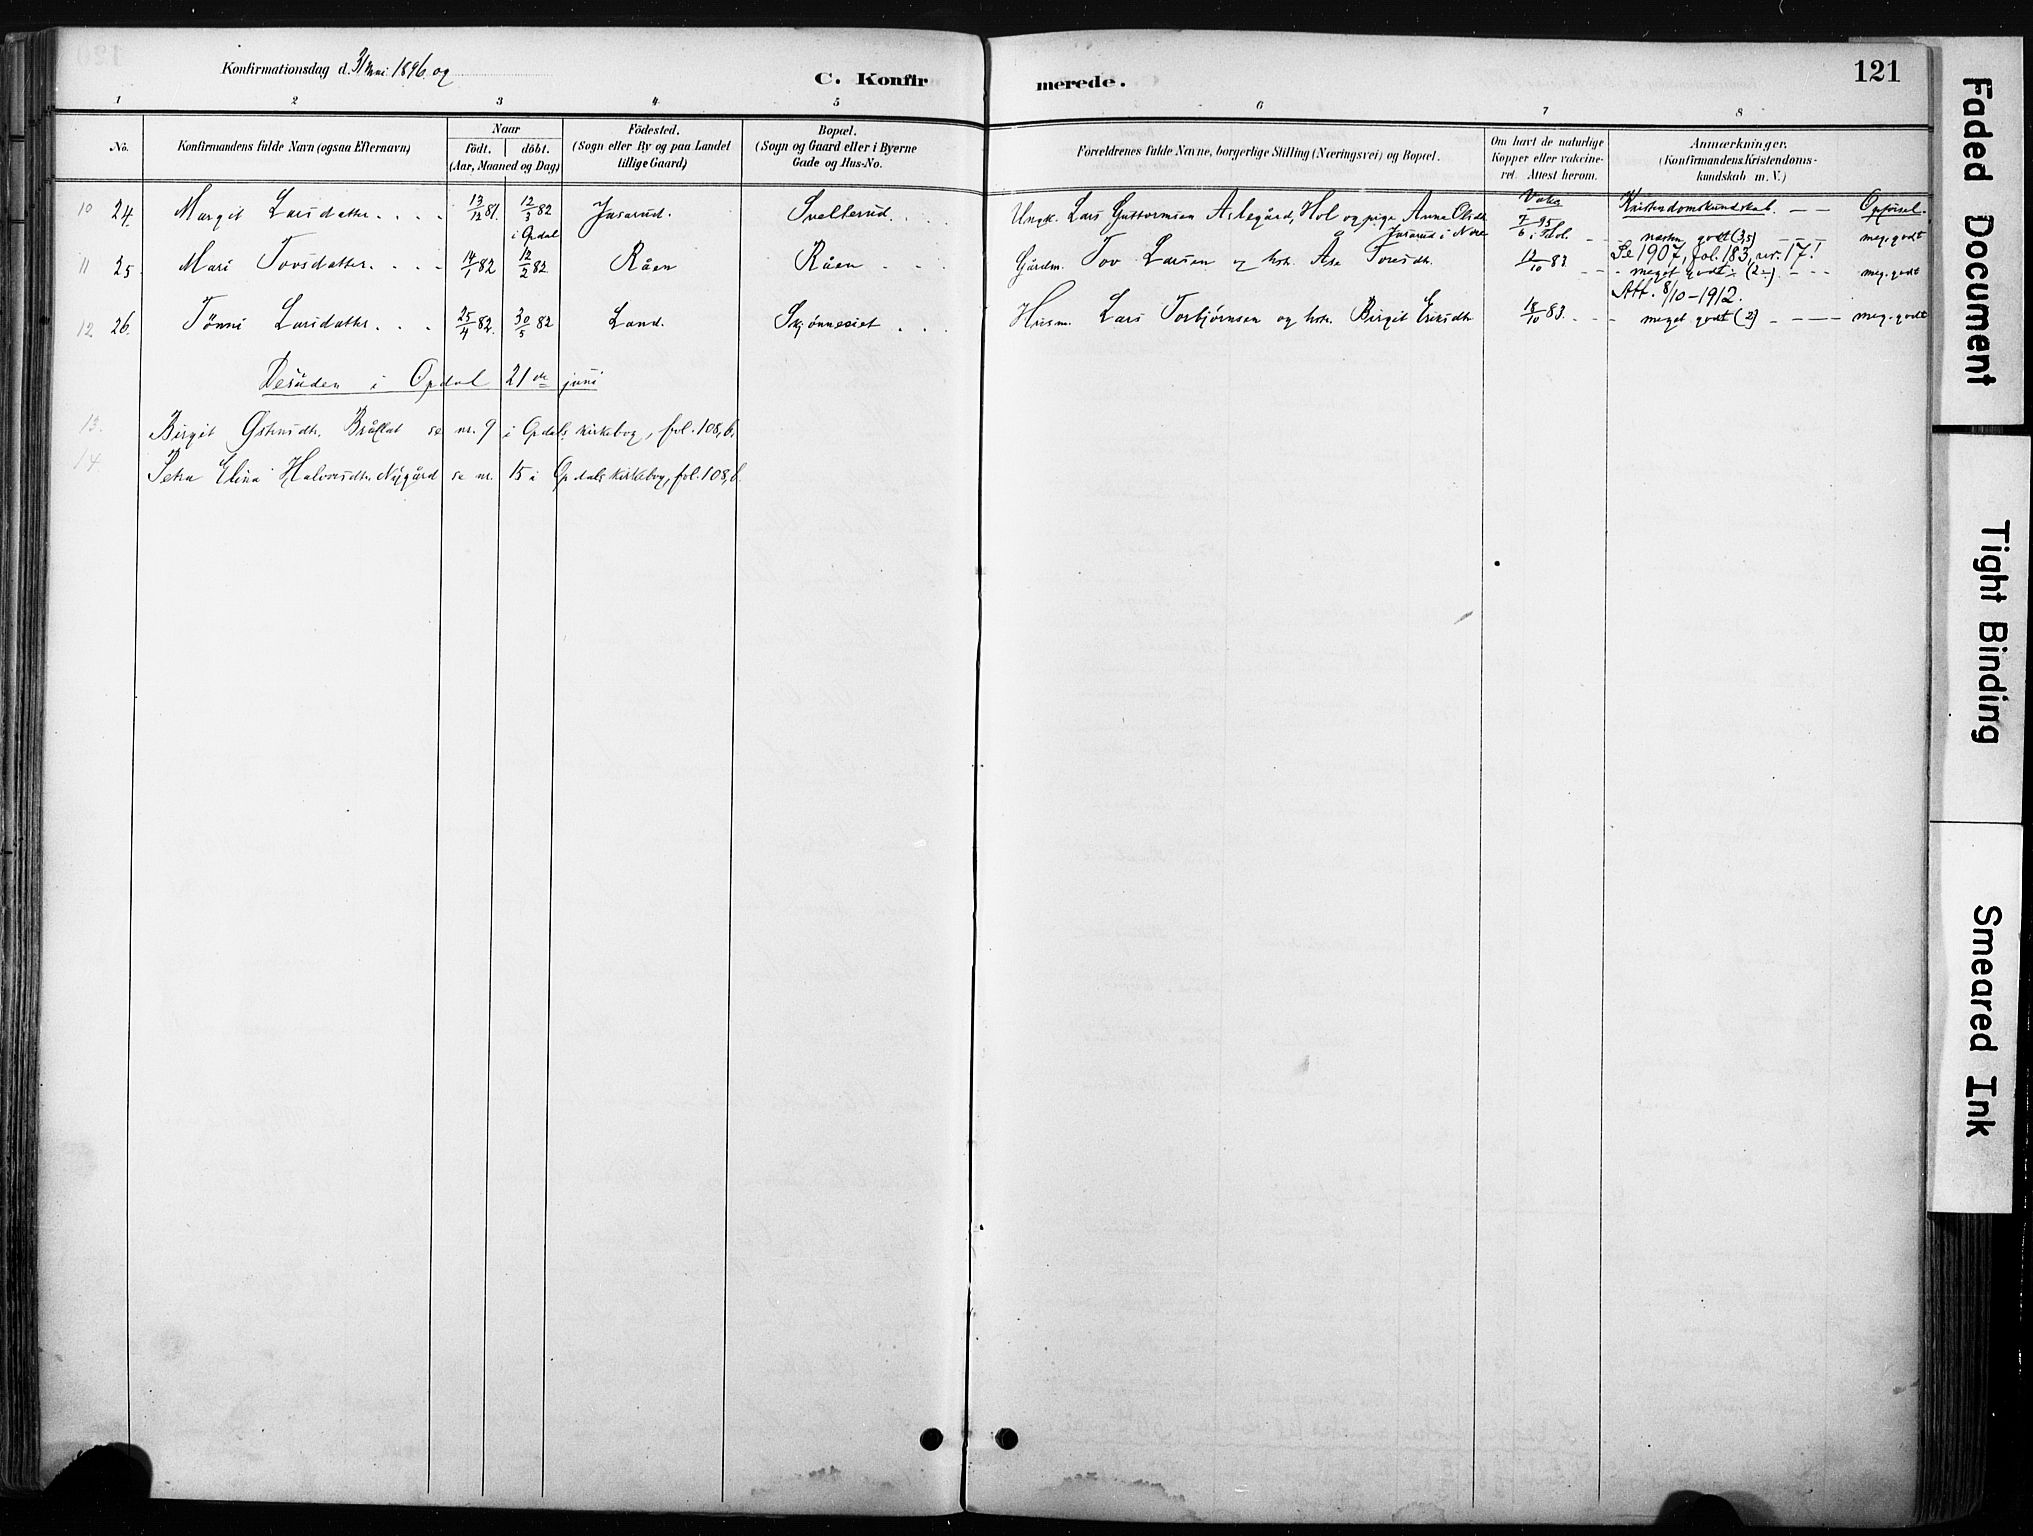 Konfirmationsdag d. 31 Mai 1896 og
C. Konfirmerede.
121
1 2 3 4 5 6 7 8
No.
Konfirmandens fulde Navn (ogsaa Efternavn)
Naar
født. døbt.
(Aar, Maaned og Dag)
Födested.
(Sogn eller By og paa Landet
tillige Gaard)
Bopæl.
(Sogn og Gaard eller i Byerne
Gade og Hus-No.
Forældrenes fulde Navne, borgerlige Stilling (Næringsvei) og Bopæl.
Om havt de naturlige
Kopper eller vakcine-
ret. Attest herom.
Anmærkninger.
(Konfirmandens Kristendoms-
kundskab m. V.)
Kristendomskundskab. — — Opførsel.
10 24. Margit Larsdatter. . . . 13/12 81. 12/3 82 i Opdal Jasarud. Svelterud. . . Ungk. Lars Guttormsen Aslegård, Hol og pige Anne Olsdtr. Jasarud i Nore 7/6 95 i Hol. næsten godt (3,5) meg. godt
Se 1907, fol. 183, nr. 17!
11 25. Mari Tovsdatter. . . . 14/1 82 12/2 82. Råen Råen . . Gårdm. Tov Larsen og hstr. Åse Toresdtr. 12/10 83 meget godt (2-) — — meg. godt
Att. 8/10-1912.
12 26. Tønni Larsdatter. . . . 25/4 82. 30/5 82 Land. Skjønneseiet . . . Husm. Lars Torbjørnsen og hstr. Birgit Eriksdtr. 18/10 83. meget godt (2) — — — meg. godt
Desuden i Opdal 21de juni
13. Birgit Østensdtr. Bråflat se nr. 9 i Opdals kirkebog, fol. 108, b.
14. Petra Elina Halvorsdtr. Nygård se nr. 15 i Opdals kirkebog, fol. 108, b.
Faded Document
Tight Binding
Smeared Ink